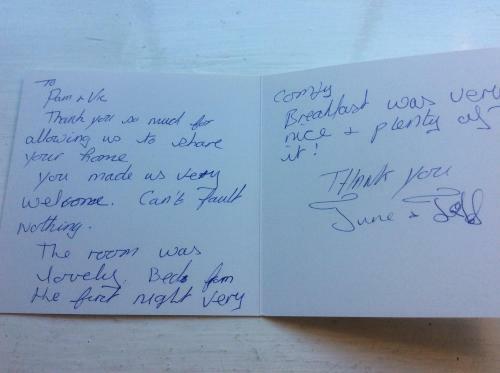 To
Pam + Vic
Thank you so much for
allowing us to share
your home
you made us very
welcome. Can't fault
nothing.
The room was
lovely. Beds
the first night very
comfy
Breakfast was very
nice + plenty of
it!
Thank you
June &